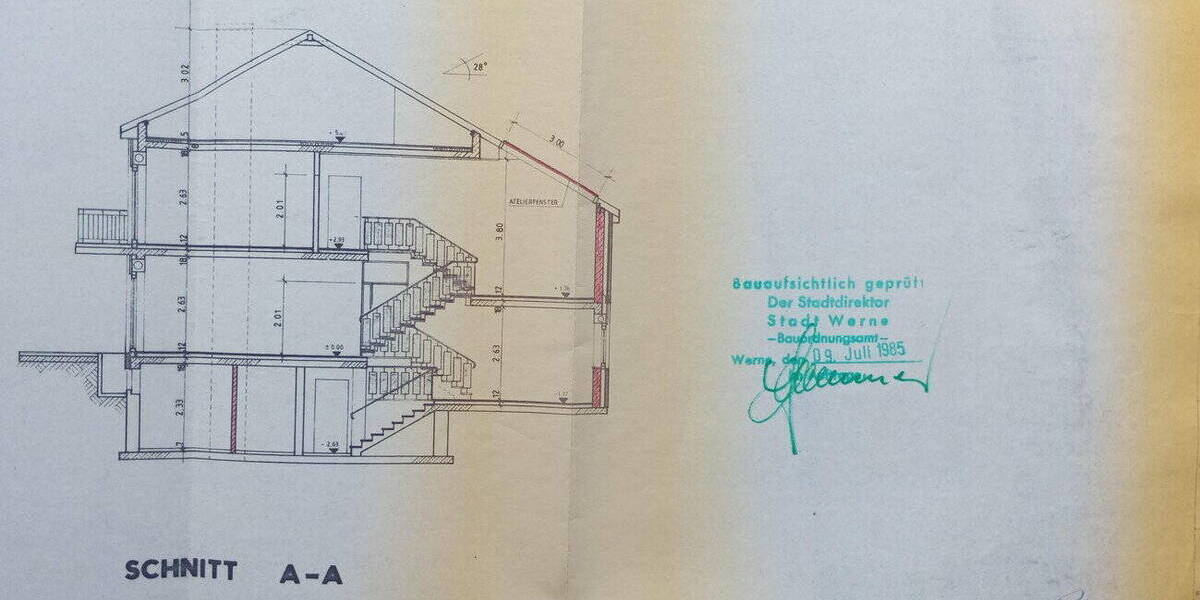 3.02
28°
3.00
ATELIERFENSTER
5
18
2.63
2.01
3.80
+2.93
12
18
+1.76
12
18
2.63
2.01
2.63
± 0.00
12
18
2.33
12
7
-2.63
Bauaufsichtlich geprüft
Der Stadtdirektor
Stadt Werne
-Bauordnungsamt-
Werne, den 09. Juli 1985
SCHNITT A-A